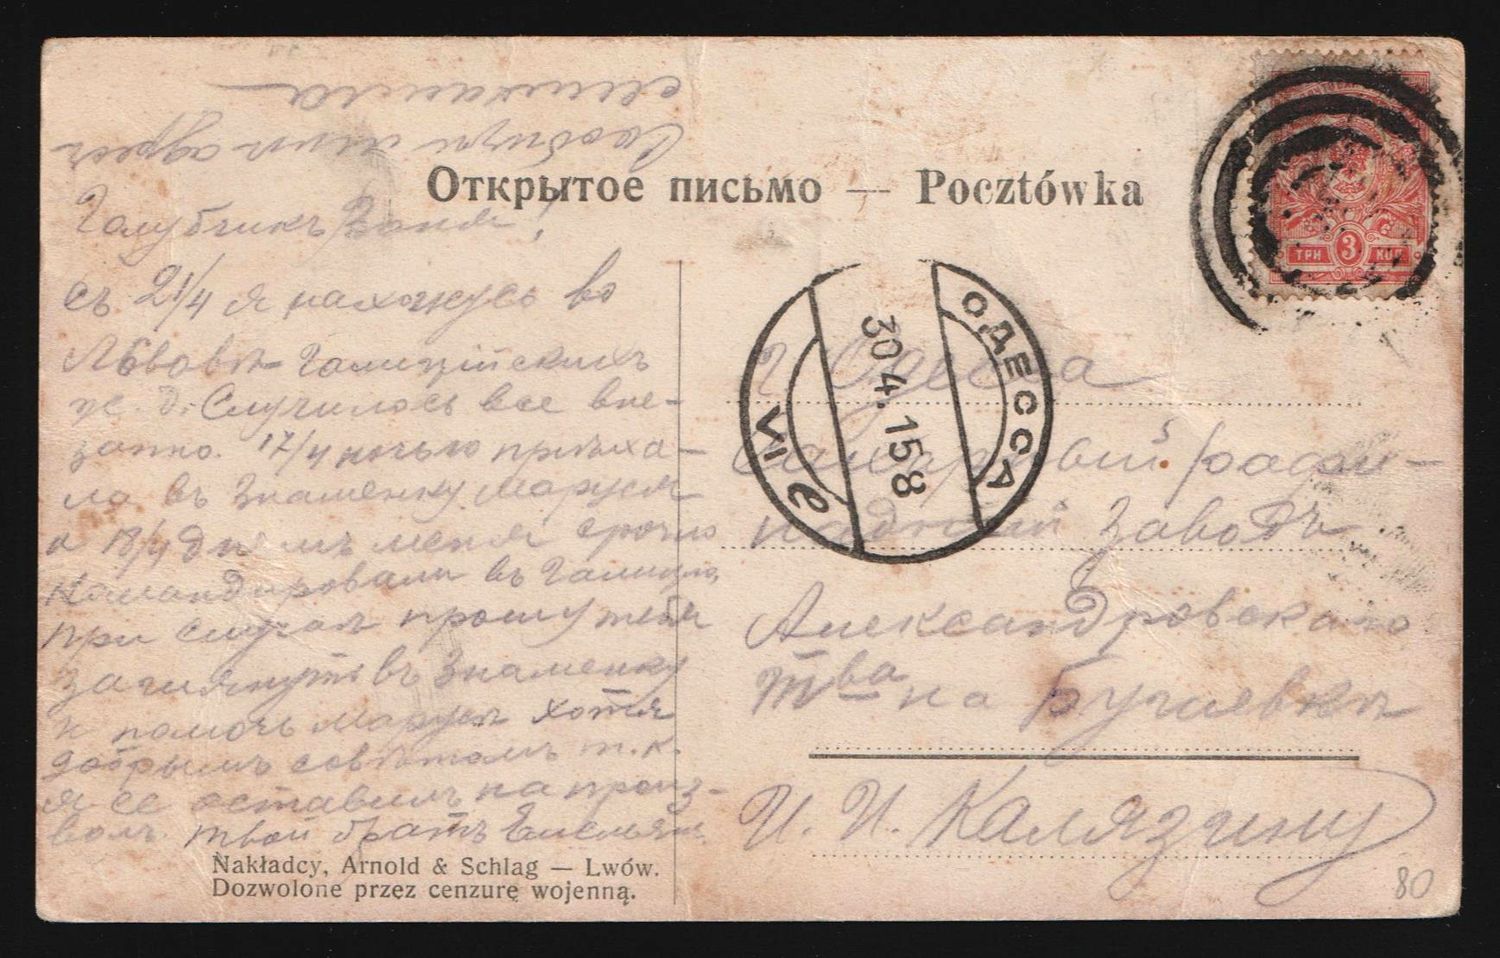 Открытое письмо — Pocztówka
ТРИ 3 КОП
ОДЕССА
30 4.15 8
VI e
Сообщи мнѣ адресъ
Голубчикъ Ваня!
съ 21/4 я нахожусь во
Львовѣ Галиційскихъ
ж. д. Случилось все вне-
запно. 17/4 ночью пріѣха-
ла въ Знаменку Маруся
а 18/4 днемъ меня срочно
командировали въ Галицію,
при случаѣ прошу тебя
заглянуть въ Знаменку
и помочь Марусѣ хотя
добрымъ совѣтомъ т.к.
я ее оставилъ на произ-
волъ. твой братъ Емельян.
г. Одесса
заводъ
Александровскаго
Тва на Бугаевкѣ
И. И. Калязину
Nakładcy, Arnold & Schlag — Lwów.
Dozwolone przez cenzurę wojenną.
80